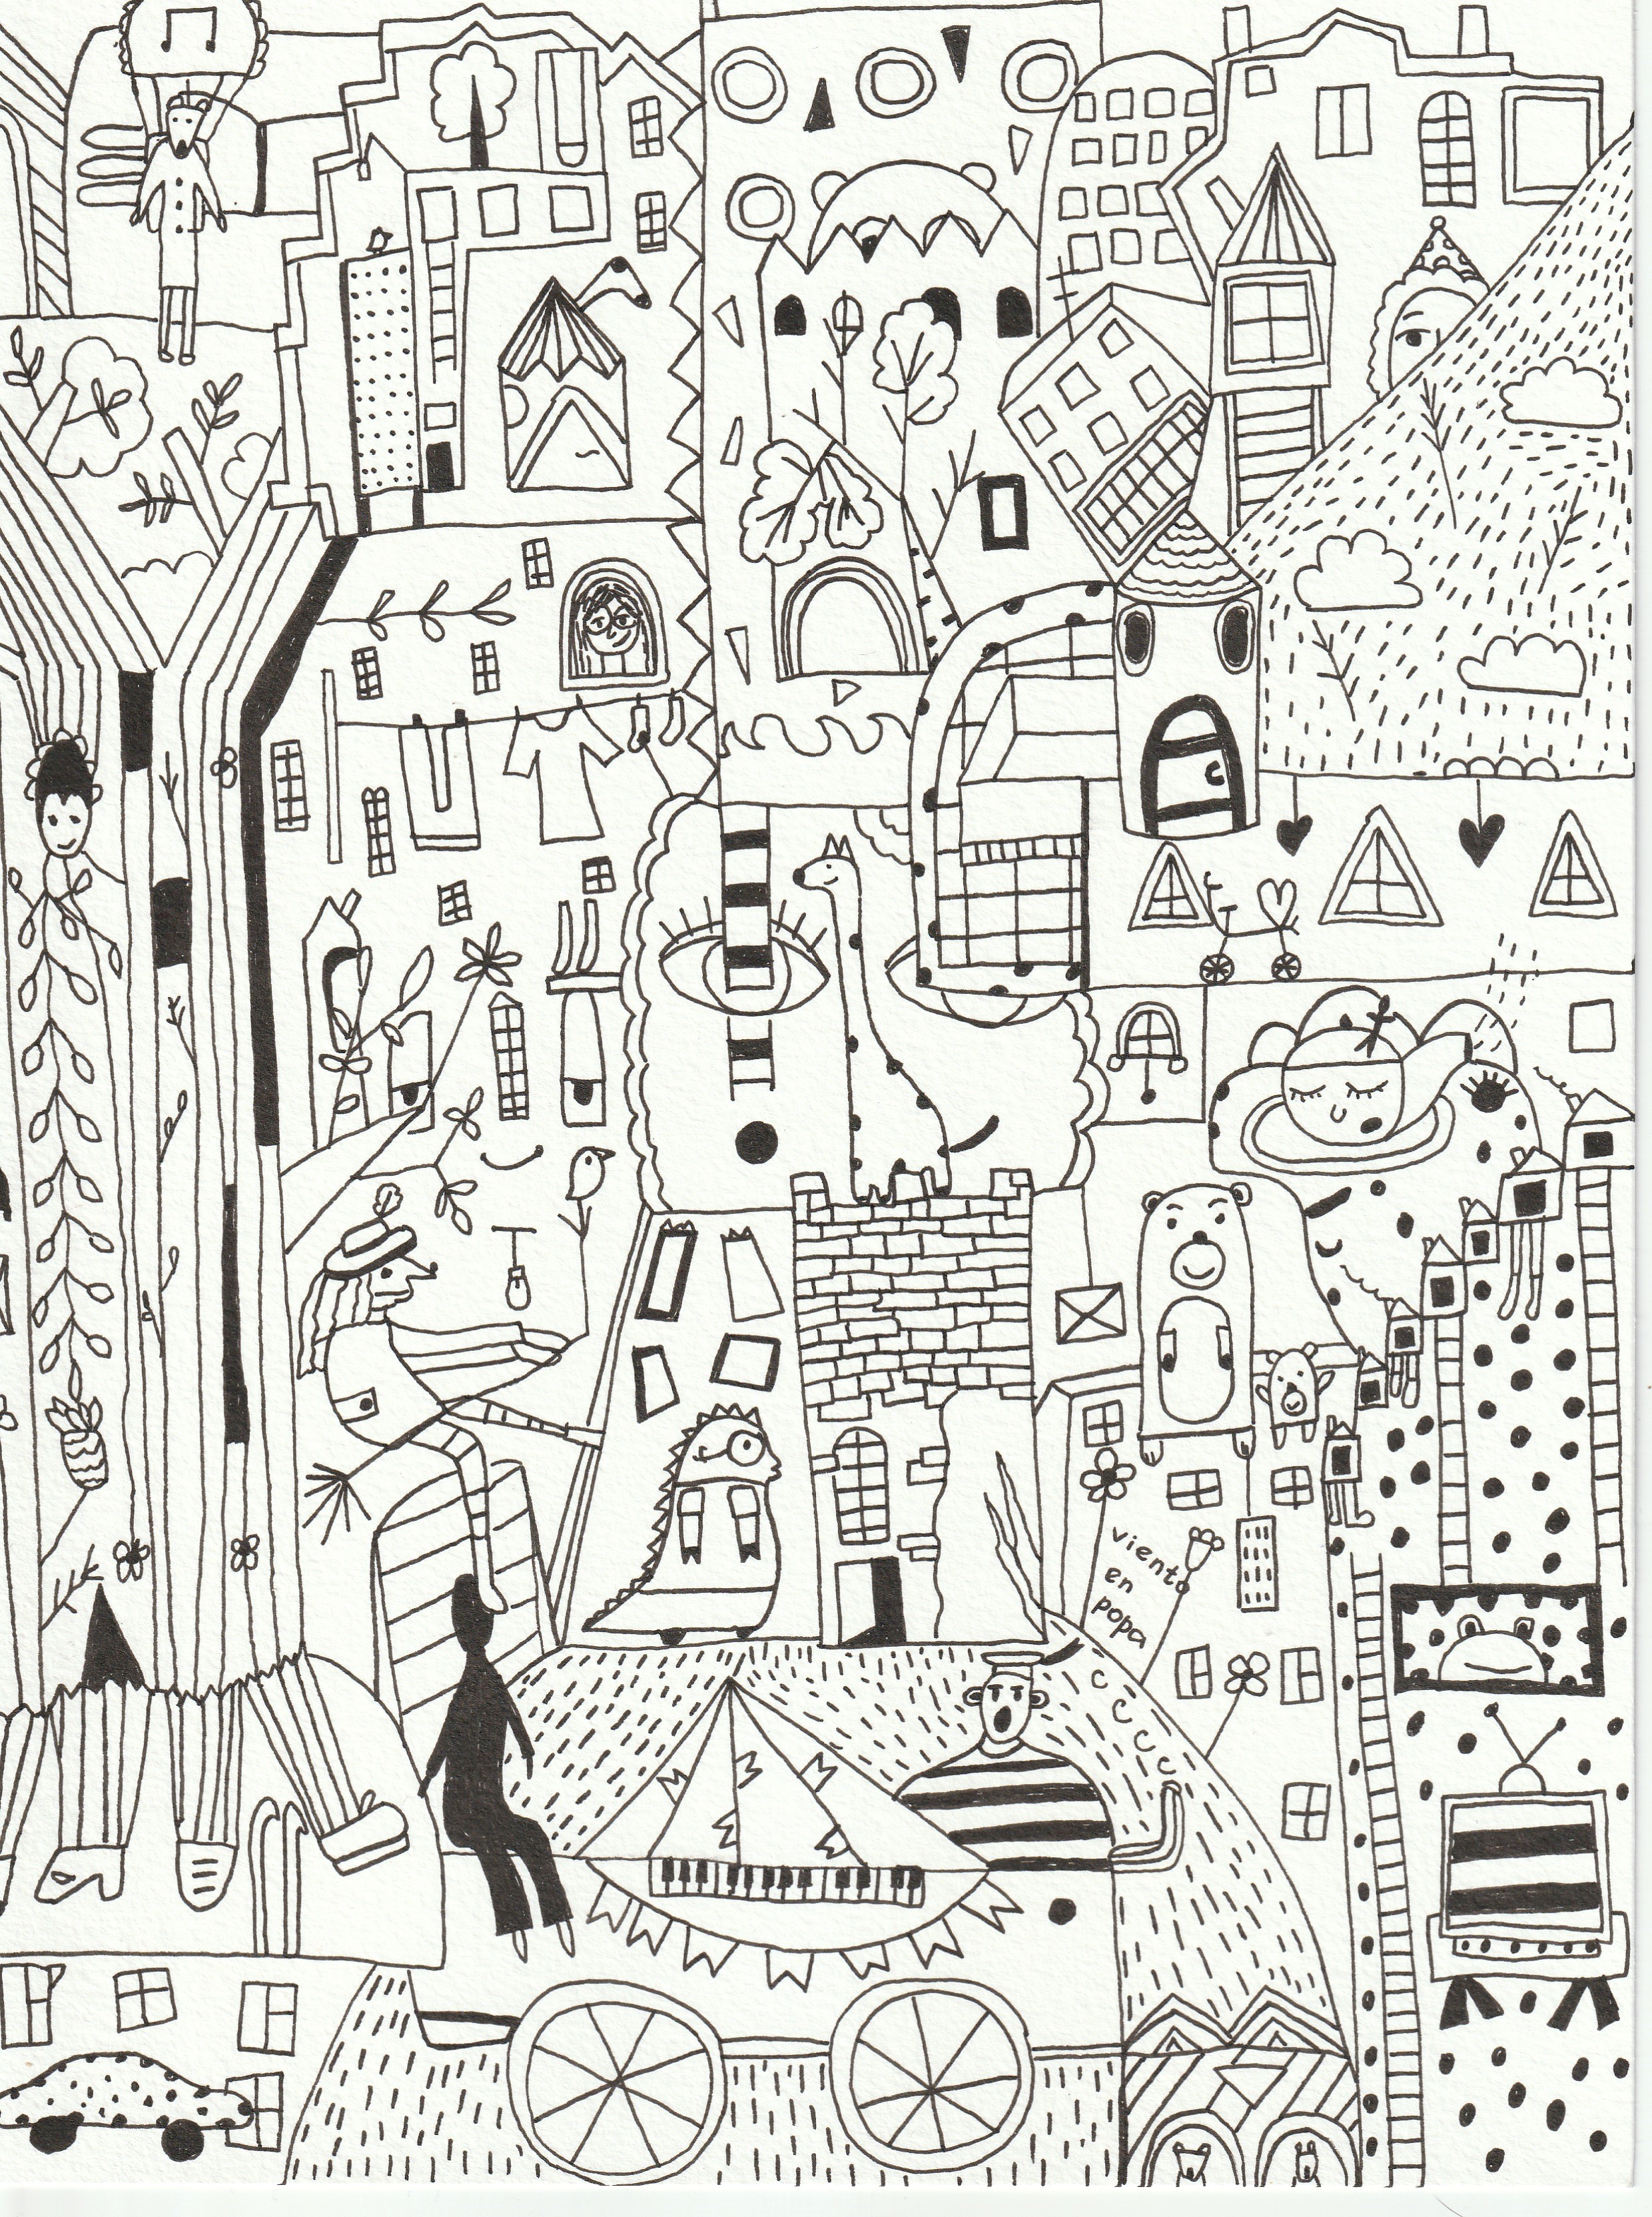 viento
en
popa